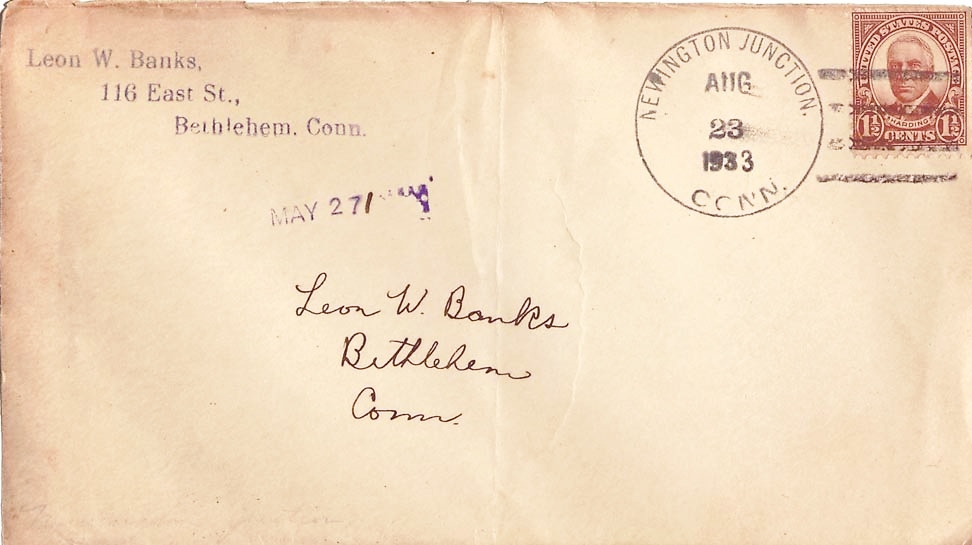 Leon W. Banks,
116 East St.,
Bethlehem, Conn.
NEWINGTON JUNCTION,
AUG
23
1933
CONN.
UNITED STATES POSTAGE
HARDING
1½ CENTS 1½
MAY 27
Leon W. Banks
Bethlehem
Conn.